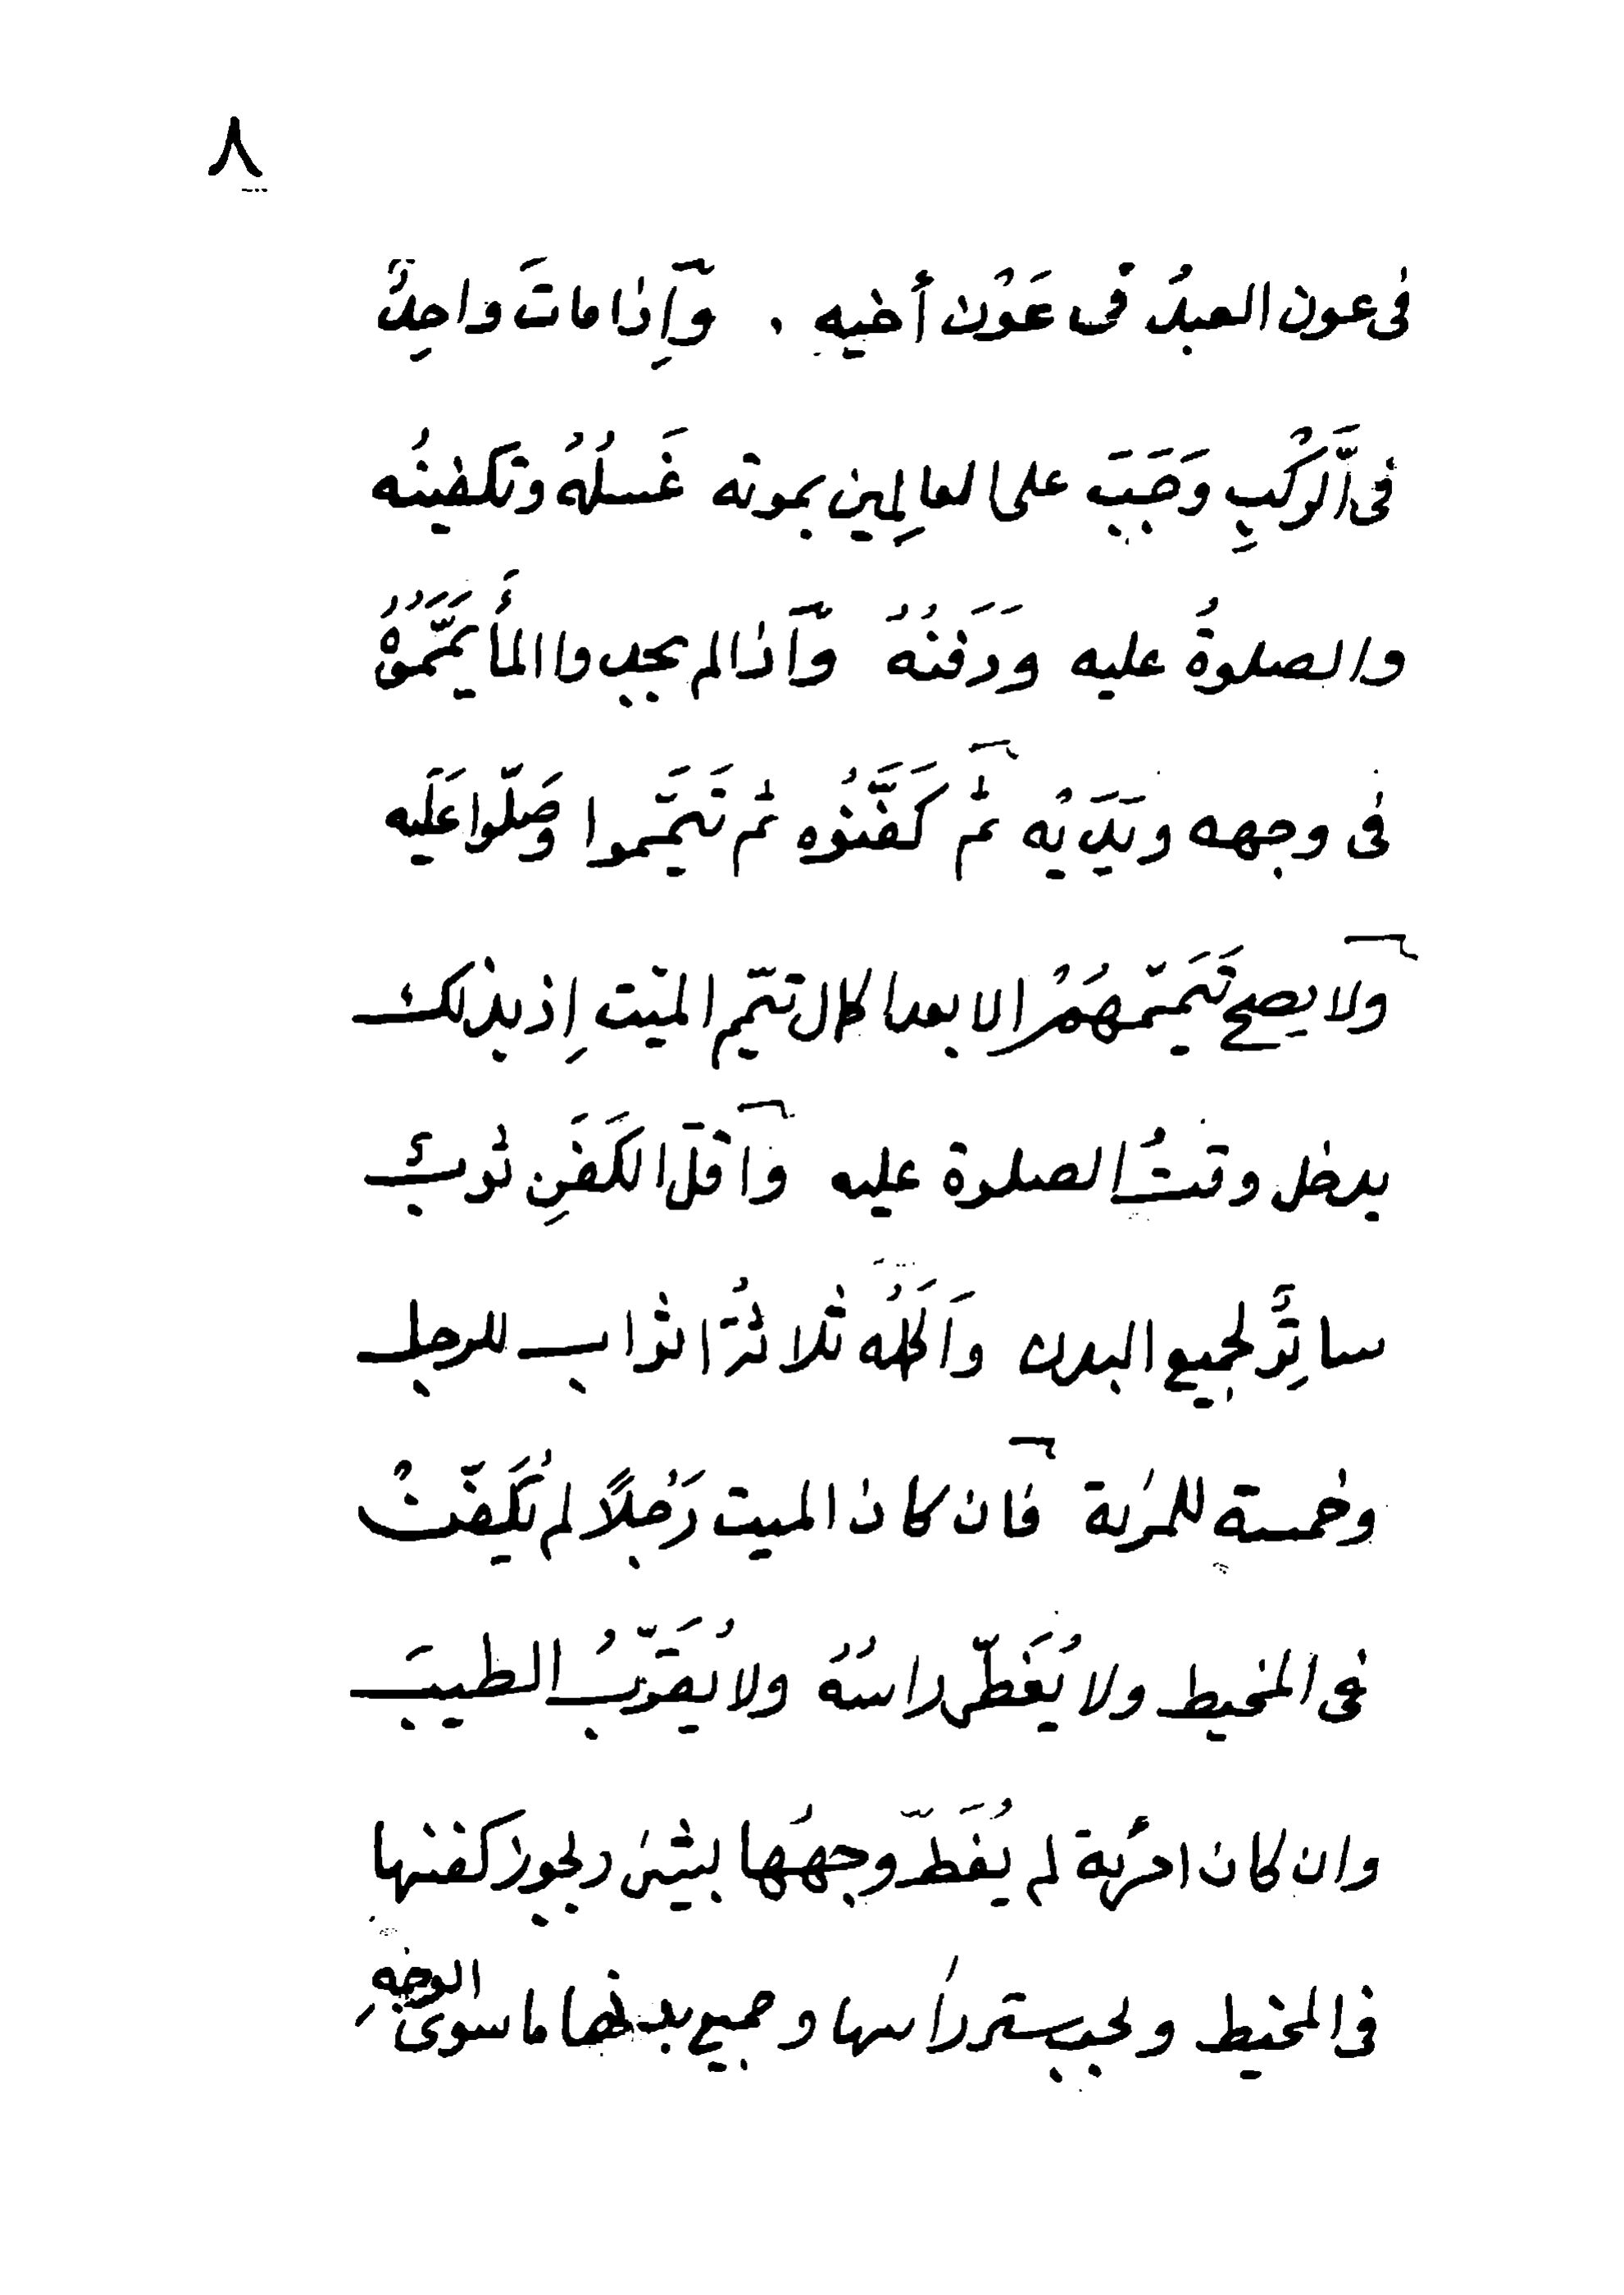 ٨
فى عون العبدُ فى عَوْن أخيه . وَإِذا ماتَ واحِدٌ
فى اَلرَّكْبِ وَجَبَ على العالِمين بموته غَسلُهُ وتكفينُه
والصلوةُ عليه ودَفَنُهُ وَاذا لم يجدوا المأَ يَمَّمُوهُ
فى وجهه ويَدَيْه ثم كَفَّنُوه ثم تَيَمَّموا وصَلّوا عَلَيه
ولا يصح تَيَمّمهُمْ الا بعد اكمال تيمّم الميّت اِذ بذلك
يدخل وقتُ الصلوة عليه وَاقلّ الكَفَنِ ثوبٌ
ساتِرٌ لجميع البدن وَاَكملُه ثلاثةُ اثواب للرجل
وخمسة للمرئة فان كان الميت رَجُلاً لم يُكَفّنْ
فى المخيط ولا يُغَطّى راسُهُ ولا يُقَرّبُ الطيبَ
وان كان امرئة لم يُغَطّ وجهُها بشئ ويجوز كفنها
فى المخيط ويجب ستر رأسها وجميع بدنها ما سوى الوجْهِ